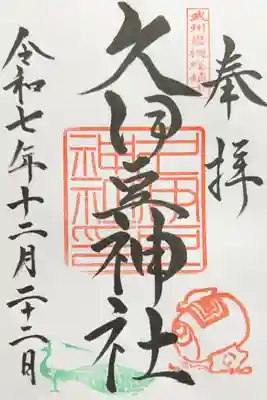 奉拝
武州岩槻総鎮守
久伊豆神社
令和七年十二月二十二日